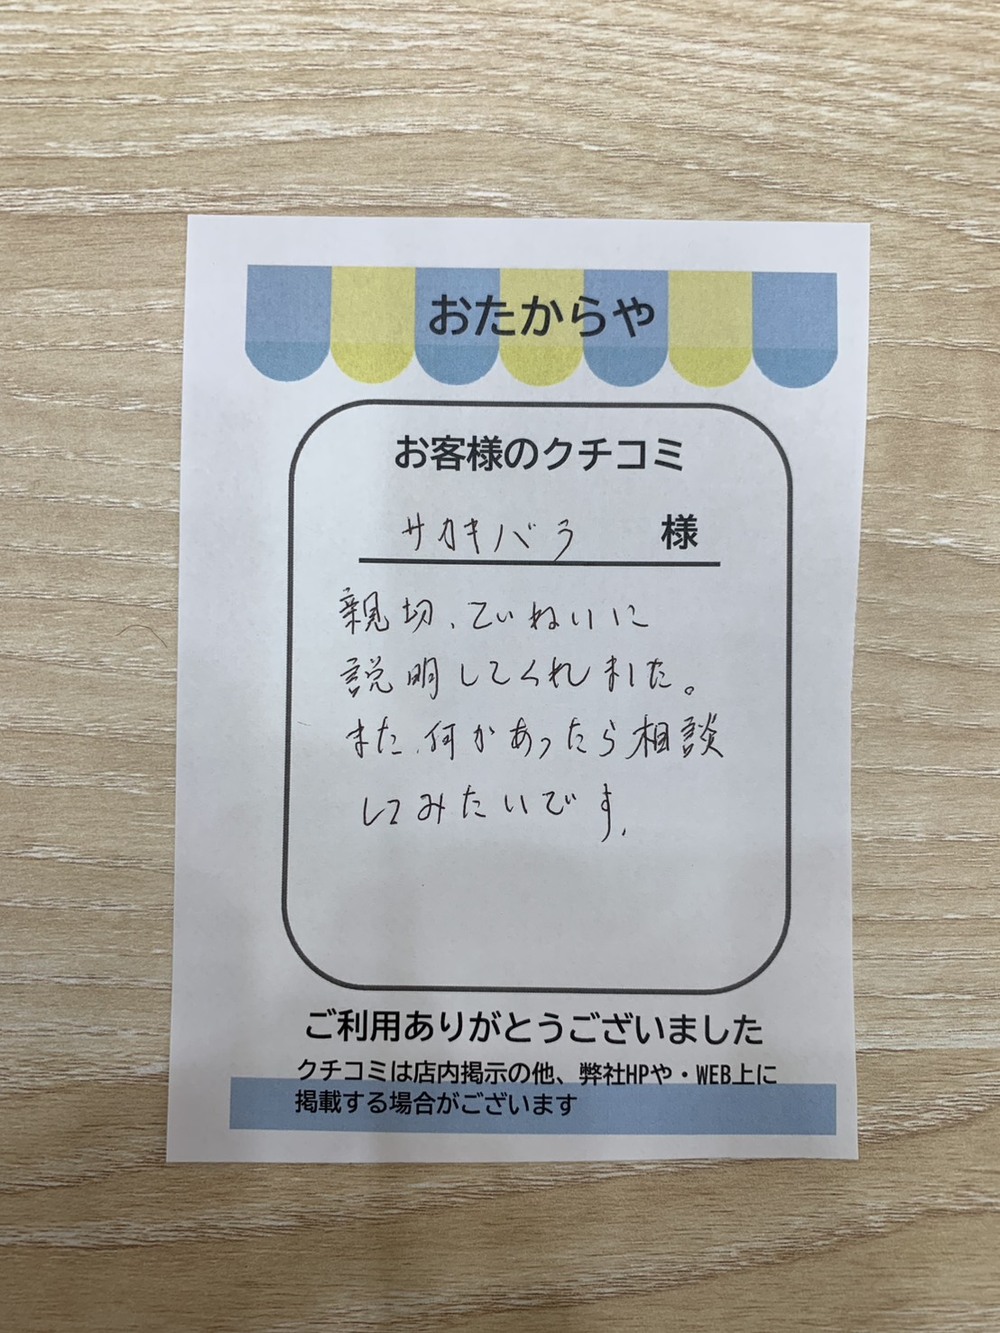 おたからや
お客様のクチコミ
サカキバラ 様
親切、ていねいに
説明してくれました。
また、何かあったら相談
してみたいです。
ご利用ありがとうございました
クチコミは店内掲示の他、弊社HPや・WEB上に
掲載する場合がございます